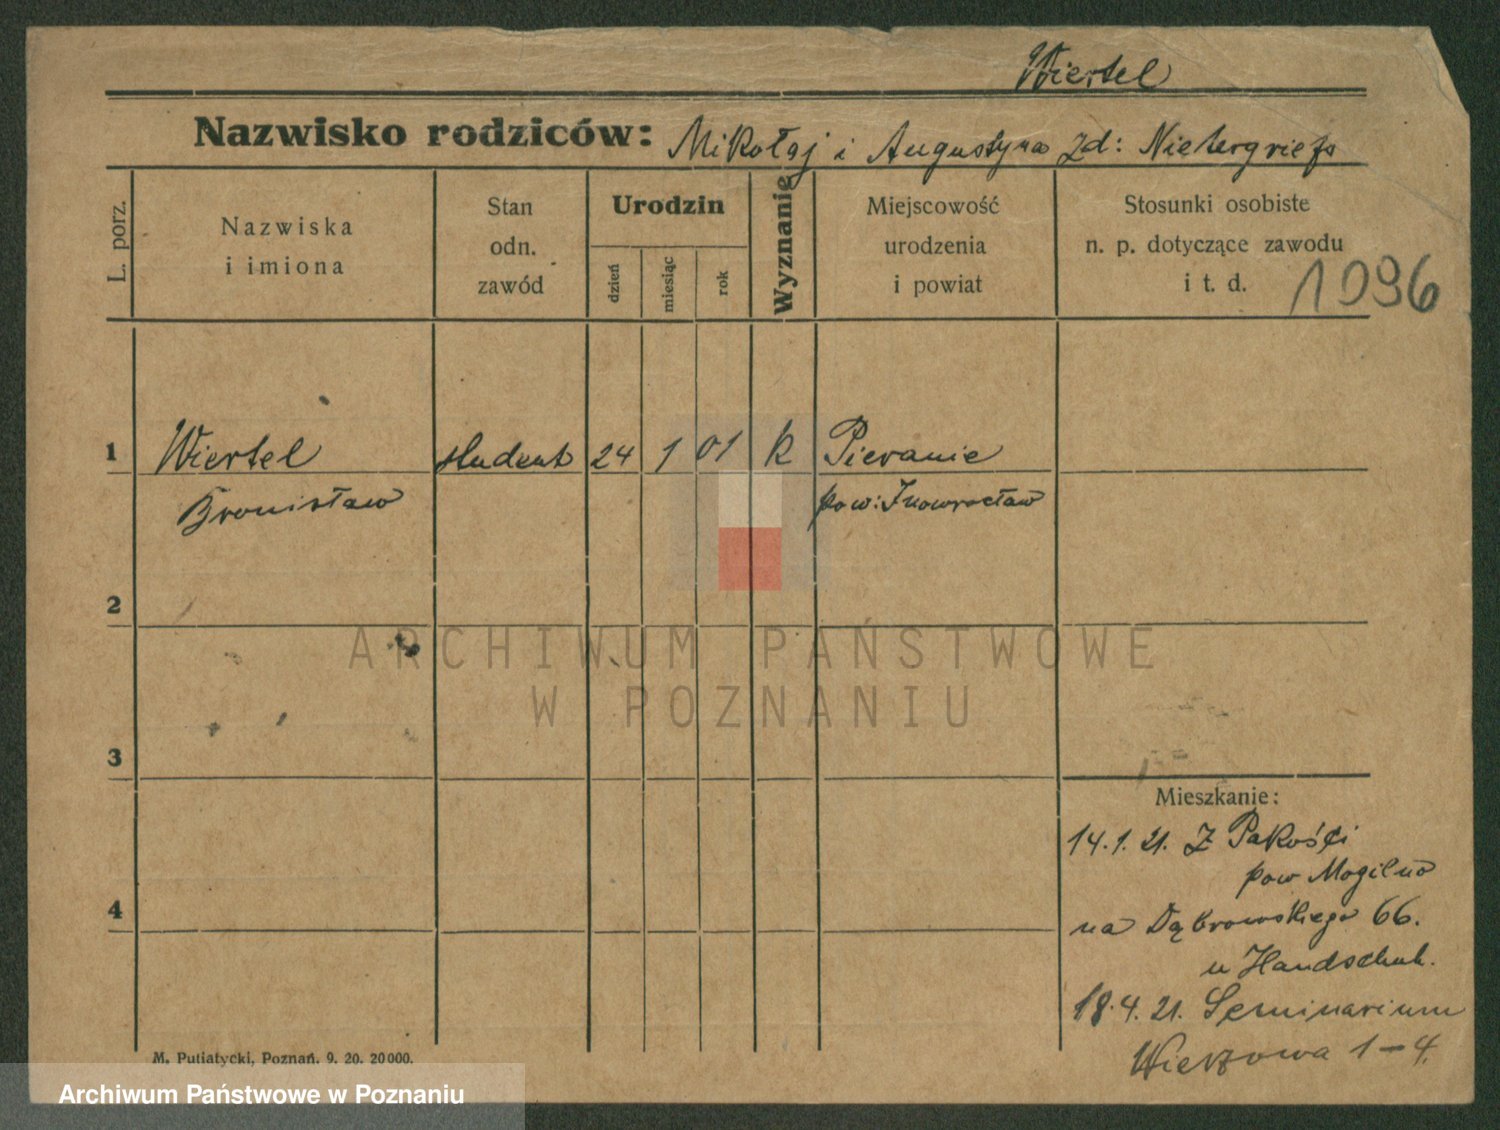 Wiertel
Nazwisko rodziców: Mikołaj i Augustyna zd:
L. porz.
Nazwiska
i imiona
Stan
odn.
zawód
Urodzin
dzień
miesiąc
rok
Wyznanie
Miejscowość
urodzenia
i powiat
Stosunki osobiste
n. p. dotyczące zawodu
i t. d.
1096
1 Wiertel student 24 1 01 k Pieranie
Bronisław pow: Inowrocław
2
3
4
Mieszkanie:
14.1.21. Z Pakości
pow Mogilno
na Dąbrowskiego 66.
u Handschuh.
18.4.21. Seminarium
Wieżowa 1-4.
M. Putiatycki, Poznań. 9. 20. 20000.
ARCHIWUM PAŃSTWOWE
W POZNANIU
Archiwum Państwowe w Poznaniu